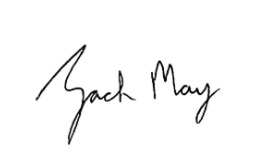 Zach May